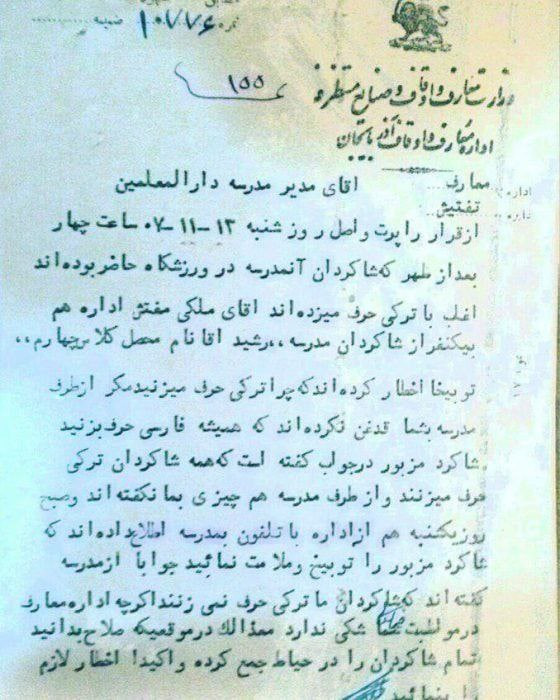 نمره ۱۰۷۷۶ ضمیمه
۱۵۵
وزارت معارف و اوقاف و صنایع مستظرفه
اداره معارف و اوقاف آذربایجان
اداره معارف
دایره تفتیش
اقای مدیر مدرسه دارالمعلمین
ازقرار راپورت واصله روز شنبه ۱۳-۱۱-۰۷ ساعت چهار
بعداز ظهر که شاکردان آنمدرسه در ورزشکاه حاضر بوده اند
اغلب با ترکی حرف میزده اند اقای ملکی مفتش اداره هم
بیکنفراز شاکردان مدرسه ,,رشید اقا نام محصل کلاس چهارم,,
توبیخا اخطار کرده اند که چرا ترکی حرف میزنید مکر ازطرف
مدرسه بشما قدغن نکرده اند که همیشه فارسی حرف بزنید
شاکرد مزبور درجواب کفته است که همه شاکردان ترکی
حرف میزنند و از طرف مدرسه هم چیزی بما نکفته اند وصبح
روز یکشنبه هم ازاداره با تلفون بمدرسه اطلاع داده اند که
شاکرد مزبور را توبیخ وملامت نمائید جوابا ازمدرسه
کفته اند که شاکردان ما ترکی حرف نمی زنند اکرچه اداره معارف
درمواظبت شما شکی ندارد معذالك درموقعیکه صلاح بدانید
تمام شاکردان را در حیاط جمع کرده واکیدا اخطار لازم
بنمائید